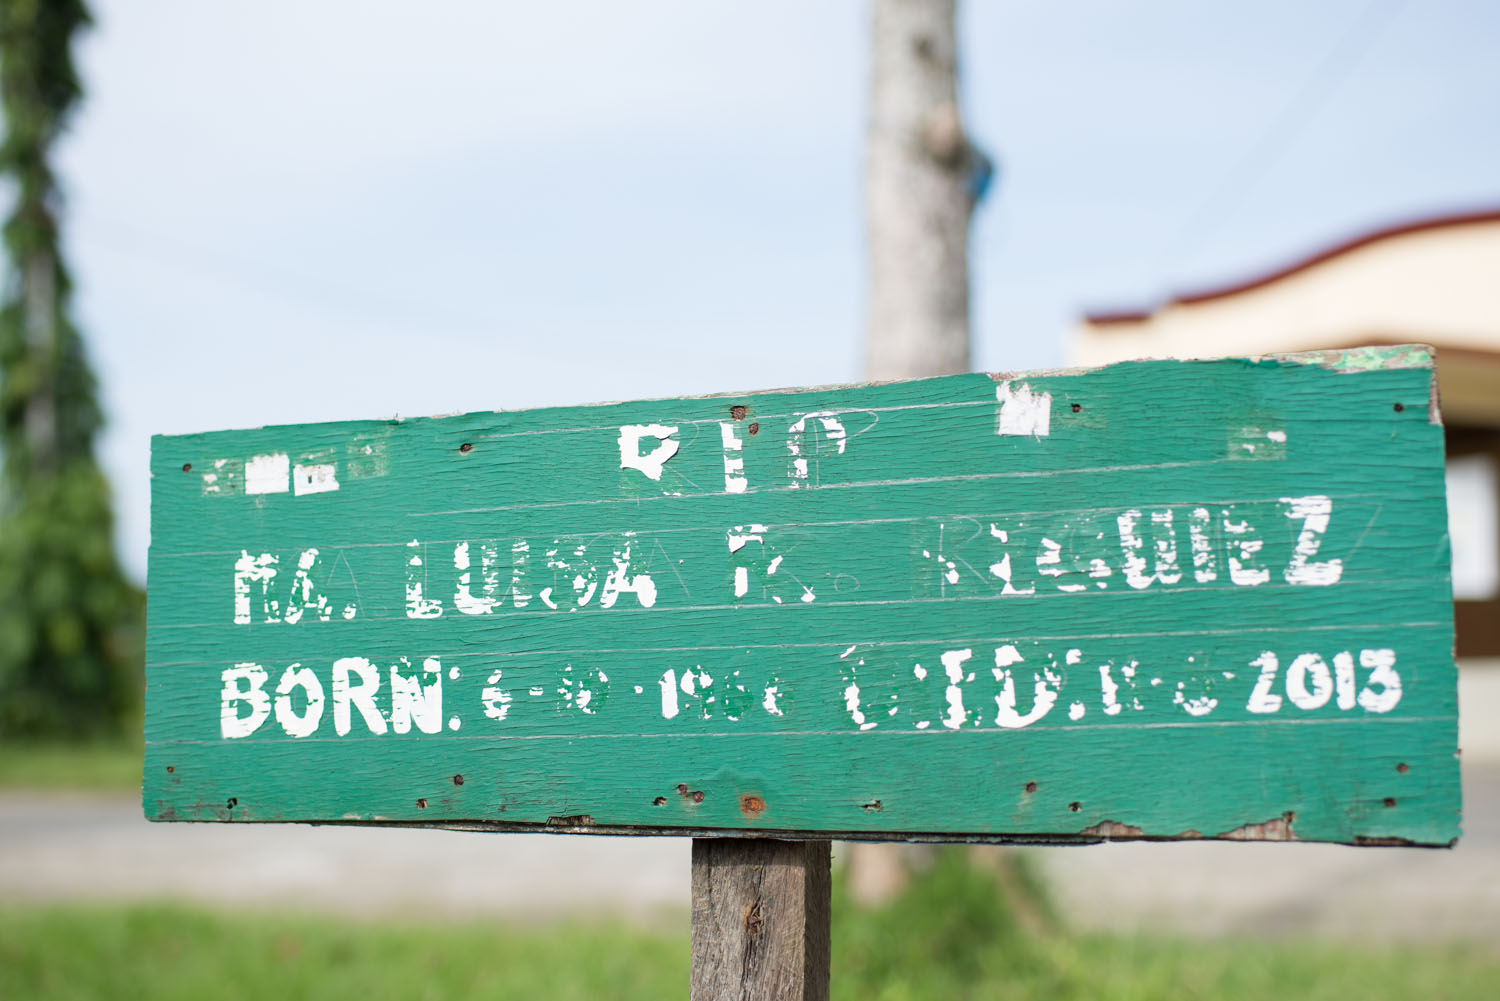 RIP
MA. LUISA R. REGUIEZ
BORN: 6-10-1966 DIED: 11-8-2013